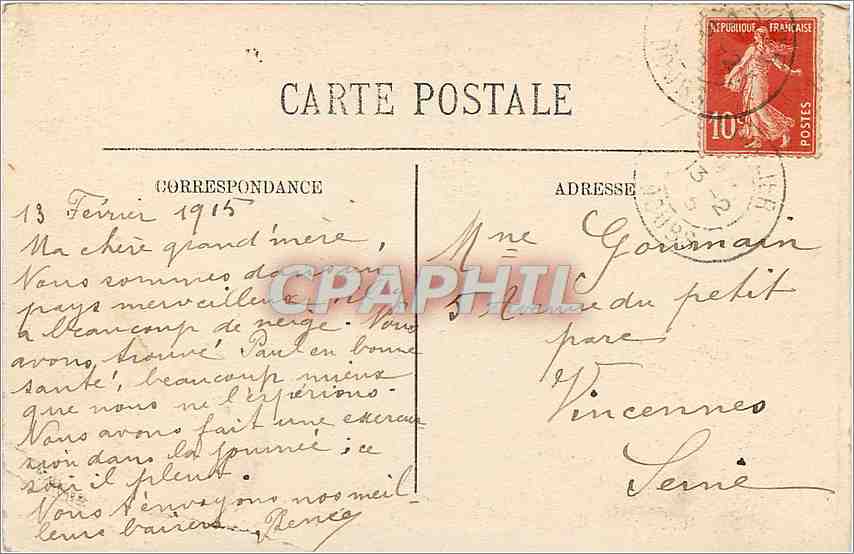 RÉPUBLIQUE FRANÇAISE
10c
POSTES
CARTE POSTALE
CORRESPONDANCE
ADRESSE
13 -2
JOURS
13 Février 1915
Ma chère grand'mère,
Nous sommes dans un
pays merveilleux, il y
a beaucoup de neige. Nous
avons trouvé Paul en bonne
santé, beaucoup mieux
que nous ne l'espérions.
Nous avons fait une excur-
sion dans la journée; ce
soir il pleut.
Nous t'envoyons nos meil-
leurs baisers.
Mme Gourmain
5 Avenue du petit
parc
Vincennes
Seine
CPAPHIL